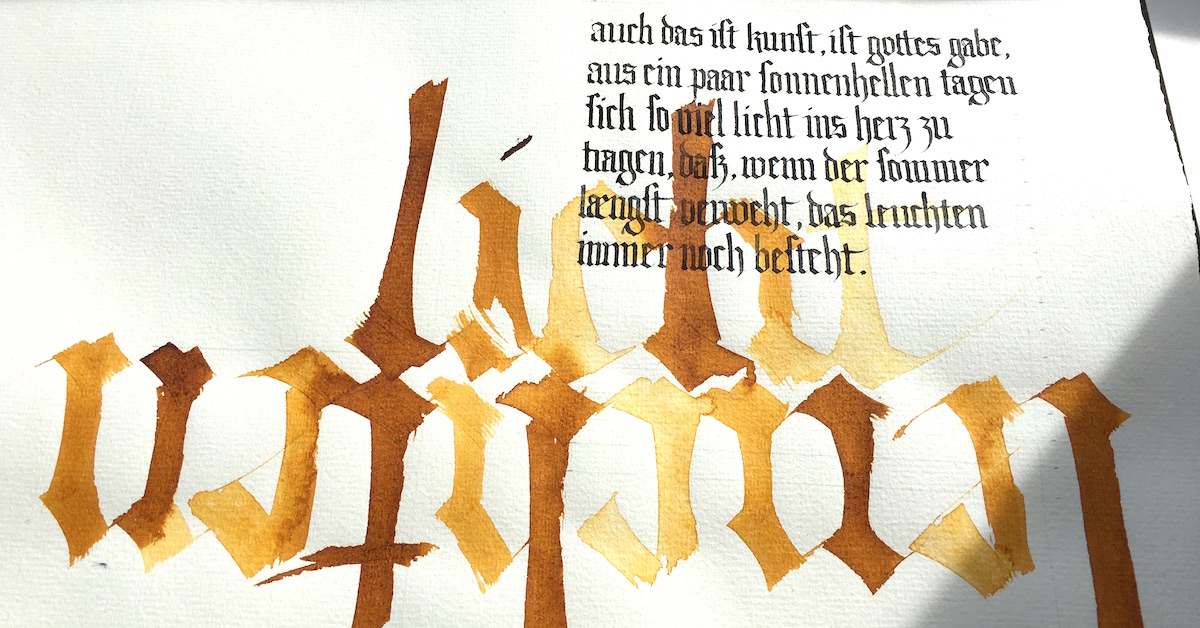 auch das iſt kunſt, iſt gottes gabe,
aus ein paar ſonnenhellen tagen
ſich ſo viel licht ins herz zu
tragen, daß, wenn der ſommer
længſt verweht, das leuchten
immer noch beſteht.
licht